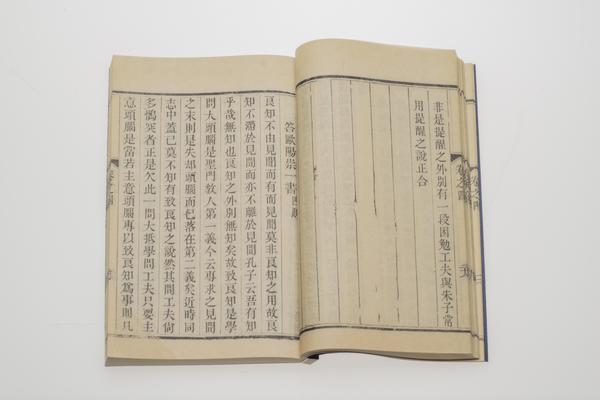 非是提醒之外別有一段困勉工夫與朱子常
用提醒之說正合
答歐陽崇一書
良知不由見聞而有而見聞莫非良知之用故良
知不滯於見聞而亦不離於見聞孔子云吾有知
乎哉無知也良知之外別無知矣故致良知是學
問大頭腦是聖門教人第一義今云專求之見聞
之末則是失却頭腦而已落在第二義矣近時同
志中蓋已莫不知有致良知之說然其間工夫尚
多鶻突者正是欠此一問大抵學問工夫只要主
意頭腦是當若主意頭腦專以致良知為事則凡
卷之四